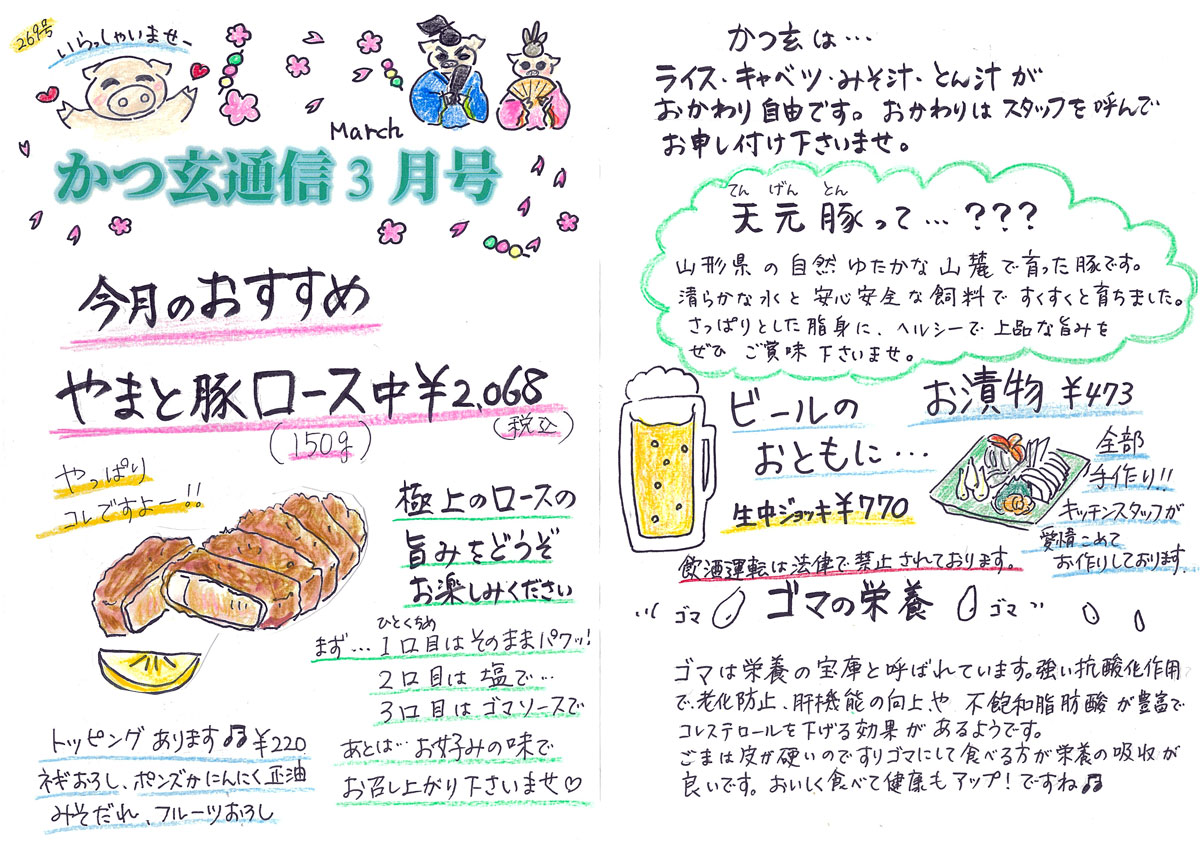 269号
いらっしゃいませー
March
かつ玄通信3月号
今月のおすすめ
やまと豚ロース中¥2,068
(150g)
(税込)
やっぱり
コレですよ〜!!
極上のロースの
旨みをどうぞ
お楽しみください
ひとくちめ
まず…1口目はそのままパクッ!
2口目は塩で…
3口目はゴマソースで
あとは…お好みの味で
お召し上がり下さいませ♡
トッピングあります♫¥220
ネギおろし、ポンズかにんにく正油
みそだれ、フルーツおろし
かつ玄は…
ライス・キャベツ・みそ汁・とん汁が
おかわり自由です。おかわりはスタッフを呼んで
お申し付け下さいませ。
てんげんとん
天元豚って…???
山形県の自然ゆたかな山麓で育った豚です。
清らかな水と安心安全な飼料ですくすくと育ちました。
さっぱりとした脂身に、ヘルシーで上品な旨みを
ぜひご賞味下さいませ。
ビールの
おともに…
生中ジョッキ¥770
お漬物¥473
全部
手作り!!
キッチンスタッフが
愛情こめて
お作りしております。
飲酒運転は法律で禁止されております。
ゴマ
ゴマの栄養
ゴマ
ゴマは栄養の宝庫と呼ばれています。強い抗酸化作用
で、老化防止、肝機能の向上や不飽和脂肪酸が豊富で
コレステロールを下げる効果があるようです。
ごまは皮が硬いのですりゴマにして食べる方が栄養の吸収が
良いです。おいしく食べて健康もアップ!ですね♫